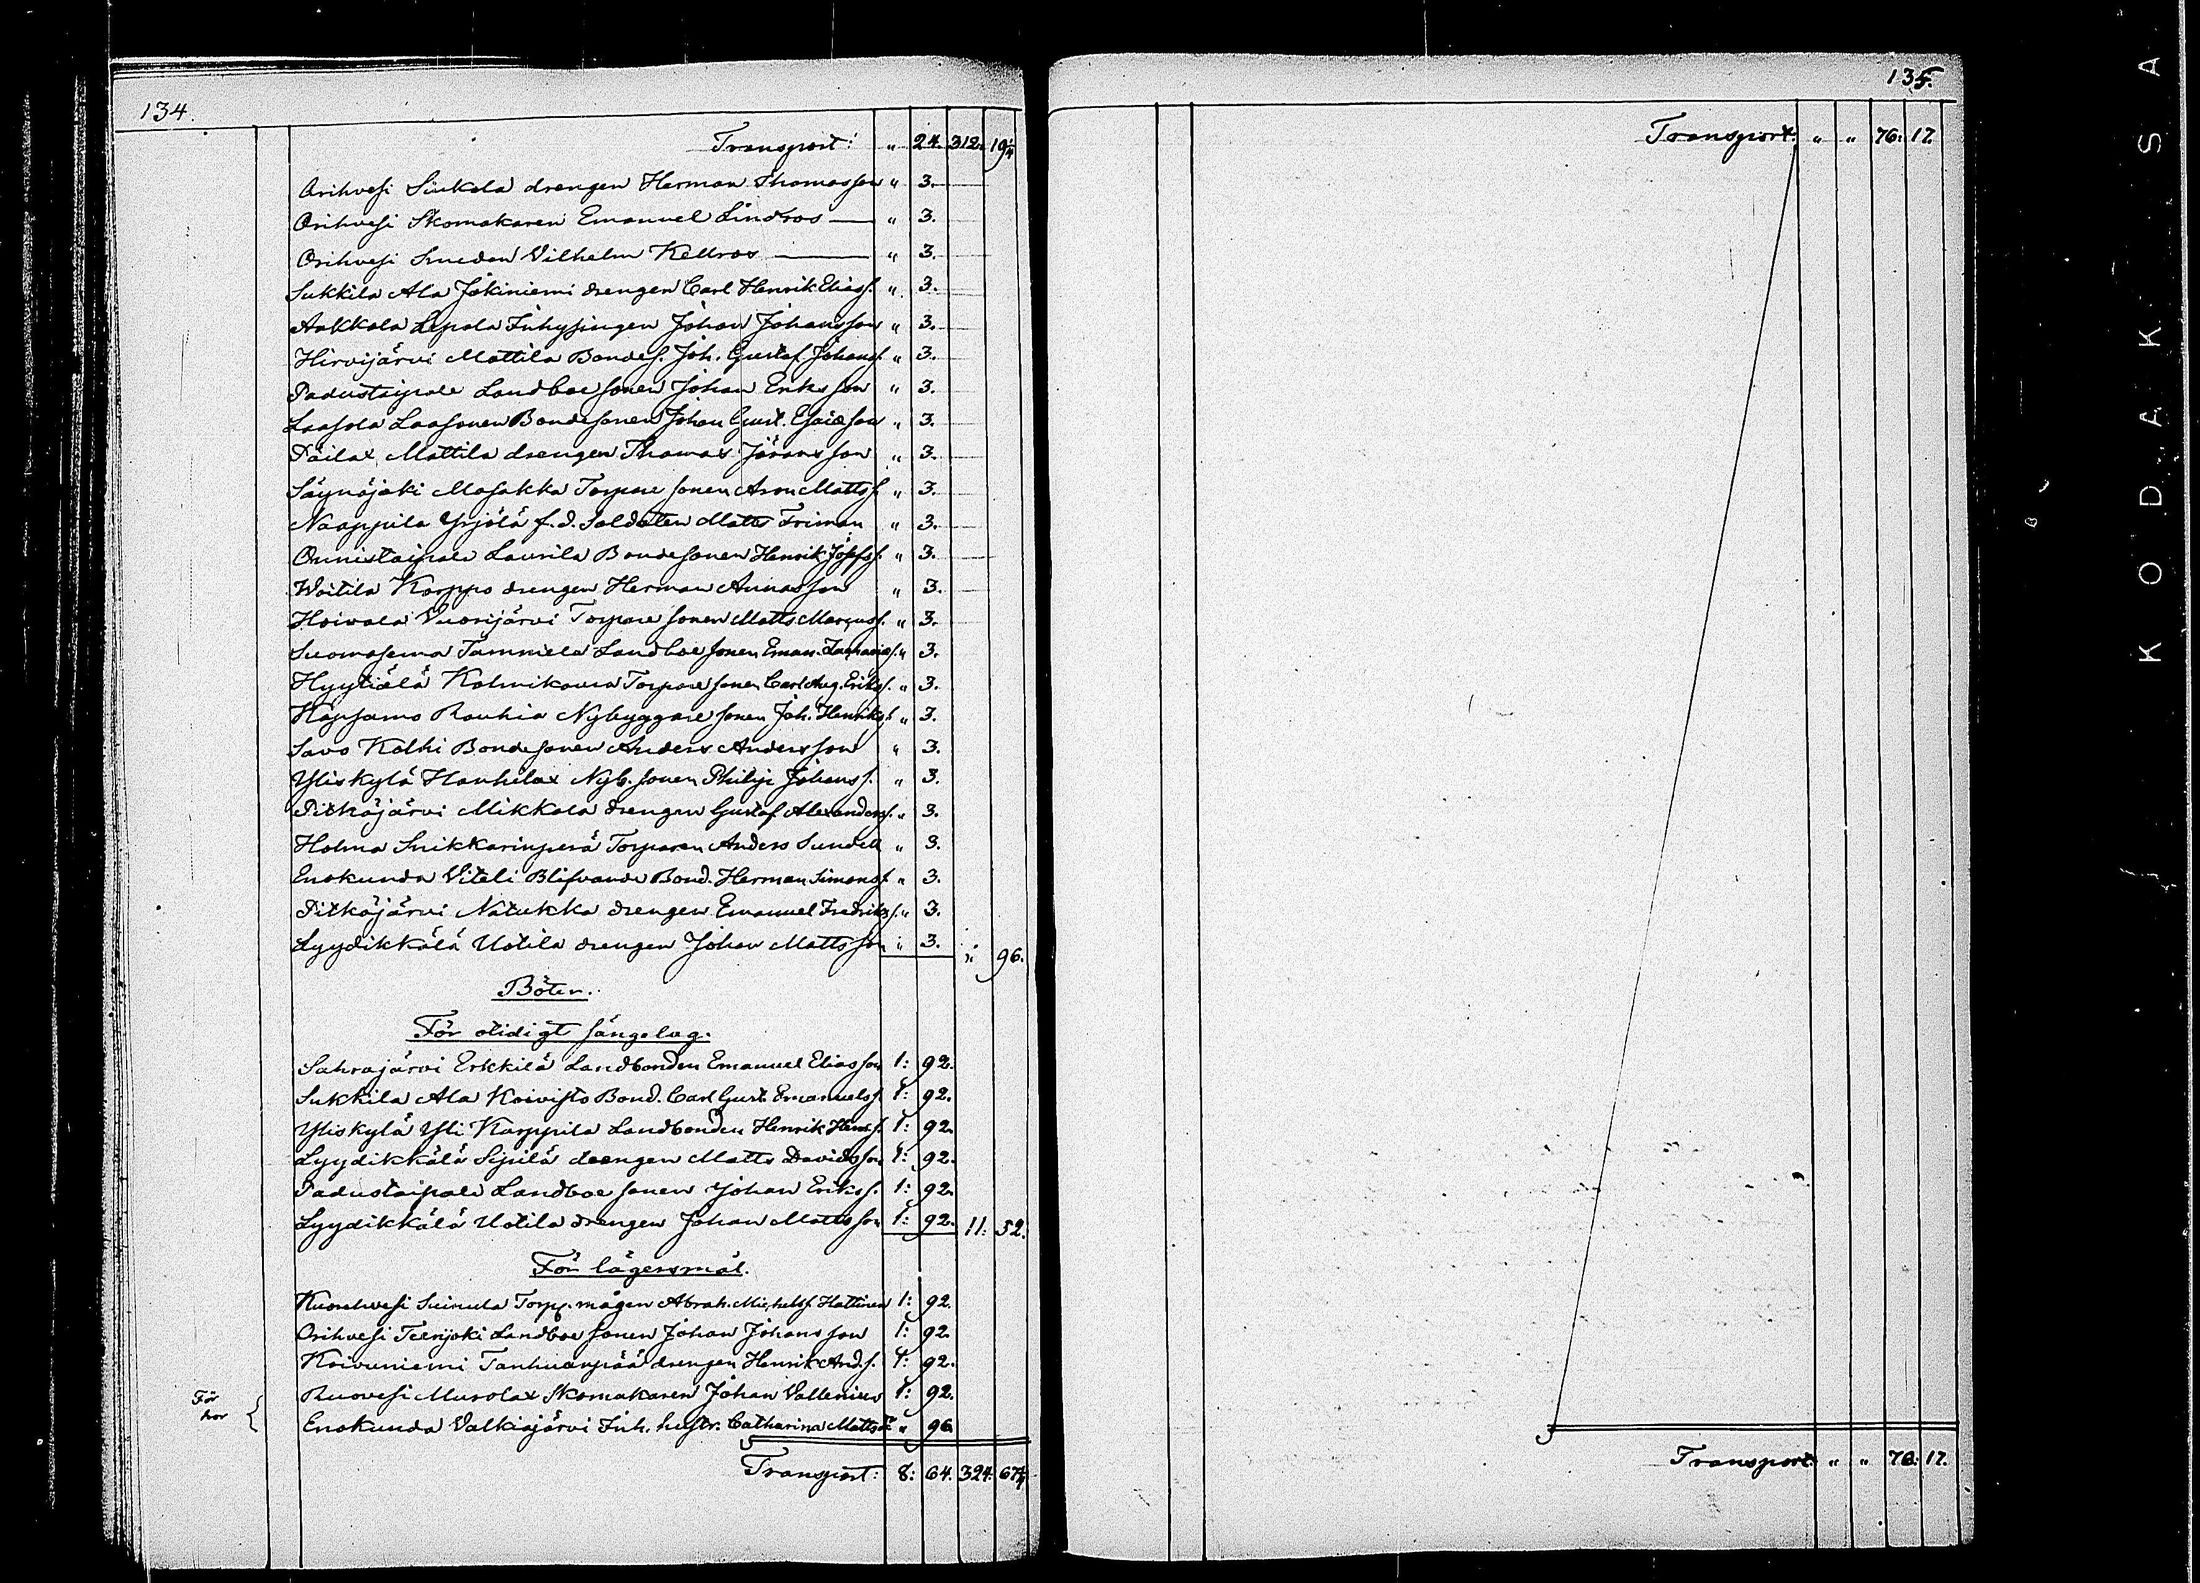 134.
Transport: " 24. 312. 19 1/4
Orihvesi Siukola drengen Herman Thomasson " 3.
Orihvesi Skomakaren Emanuel Lindros " 3.
Orihvesi Smeden Vilhelm Kellros " 3.
Sukkila Ala Jokiniemi drengen Carl Henrik Eliass. " 3.
Aakkola Lepola Inhysingen Johan Johansson " 3.
Hirvijärvi Mattila Bondes. Joh. Gustaf Johanss. " 3.
Padustaipale Landboe sonen Johan Eriksson " 3.
Laasola Laasonen Bondesonen Johan Gust. Esaiasson " 3.
Päilax Mattila drengen Thomas Jöransson " 3.
Säynäjoki Masakka Torpare sonen Aron Mattss. " 3.
Naappila Yrjölä f.d. Soldaten Matts Friman " 3.
Onnistaipale Laurila Bondesonen Henrik Josefss. " 3.
Woitila Korppo drengen Herman Annasson " 3.
Hoivala Vuorijärvi Torpare sonen Matts Marcuss. " 3.
Suomasema Tammela Landboe sonen Eman. Zachariass. " 3.
Hyytiälä Kolmikanna Torpare sonen Carl Aug. Erikss. " 3.
Häpsamo Rauhia Nybyggare sonen Joh. Henrikss. " 3.
Savo Kolhi Bondesonen Anders Andersson " 3.
Yliskylä Hanhilax Nyb. sonen Philip Johanss. " 3.
Pitkäjärvi Mikkola drengen Gustaf Alexanderss. " 3.
Holma Snikkarinperä Torparen Anders Sundell " 3.
Enokunda Viteli Blifvande Bond. Herman Simonss. " 3.
Pitkäjärvi Natukka drengen Emanuel Fredrikss. " 3.
Lyydikkälä Uotila drengen Johan Mattsson " 3. " 96.
Böter.
För otidigt sängelag.
Sahrajärvi Erkkilä Landbonden Emanuel Eliasson 1: 92.
Sukkila Ala Koivisto Bond. Carl Gust. Emanuelss. 1: 92.
Yliskylä Yli Karppila Landbonden Henrik Henrss. 1: 92.
Lyydikkälä Sipilä drengen Matts Davidsson 1: 92.
Padustaipale Landboe sonen Johan Erikss. 1: 92.
Lyydikkälä Uotila drengen Johan Mattsson 1: 92. 11: 52.
För lägersmål.
Kuorehvesi Suinula Torp. mågen Abrah. Michelss. Hattinen 1: 92.
Orihvesi Teerijoki Landboe sonen Johan Johansson 1: 92.
Koivuniemi Tanhuanpää drengen Henrik And.s. 1: 92.
För
hor
Ruovesi Murolax Skomakaren Johan Vallenius 1: 92.
Enokunda Valkiajärvi Inh. hustr. Catharina Mattsdr " 96.
Transport: 8: 64. 324: 67 1/4
135.
Transport: " " 76: 17.
Transport: " " 76: 17.
KODAK SA